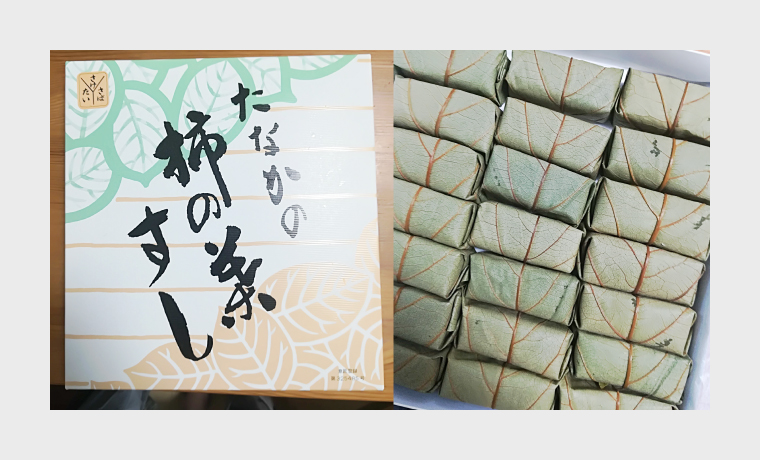 たなかの
柿の葉
すし
さけ
さば
たい